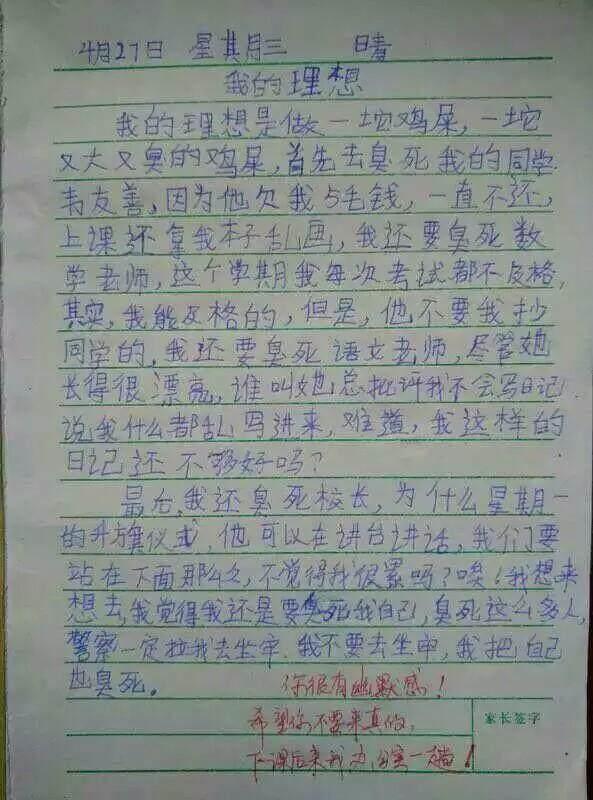 4月27日 星其月三 晴
我的理想
我的理想是做一坨鸡屎,一坨
又大又臭的鸡屎,首先去臭死我的同学
韦友善,因为他欠我5毛钱,一直不还,
上课还拿我本子乱画,我还要臭死数
学老师,这个学期我每次考试都不及格,
其实,我能及格的,但是,他不要我抄
同学的,我还要臭死语文老师,尽管她
长得很漂亮,谁叫她总批评我不会写日记
说我什么都乱写进来,难道,我这样的
日记还不够好吗?
最后,我还臭死校长,为什么星期一
的升旗仪式,他可以在讲台讲话,我们要
站在下面那么久,不觉得我很累吗?唉!我想来
想去,我觉得我还是要臭死我自己,臭死这么多人,
警察一定拉我去坐牢.我不要去坐牢,我把自己
也臭死。
你很有幽默感!
希望你不要来真的,
下课后来我办公室一趟!
家长签字